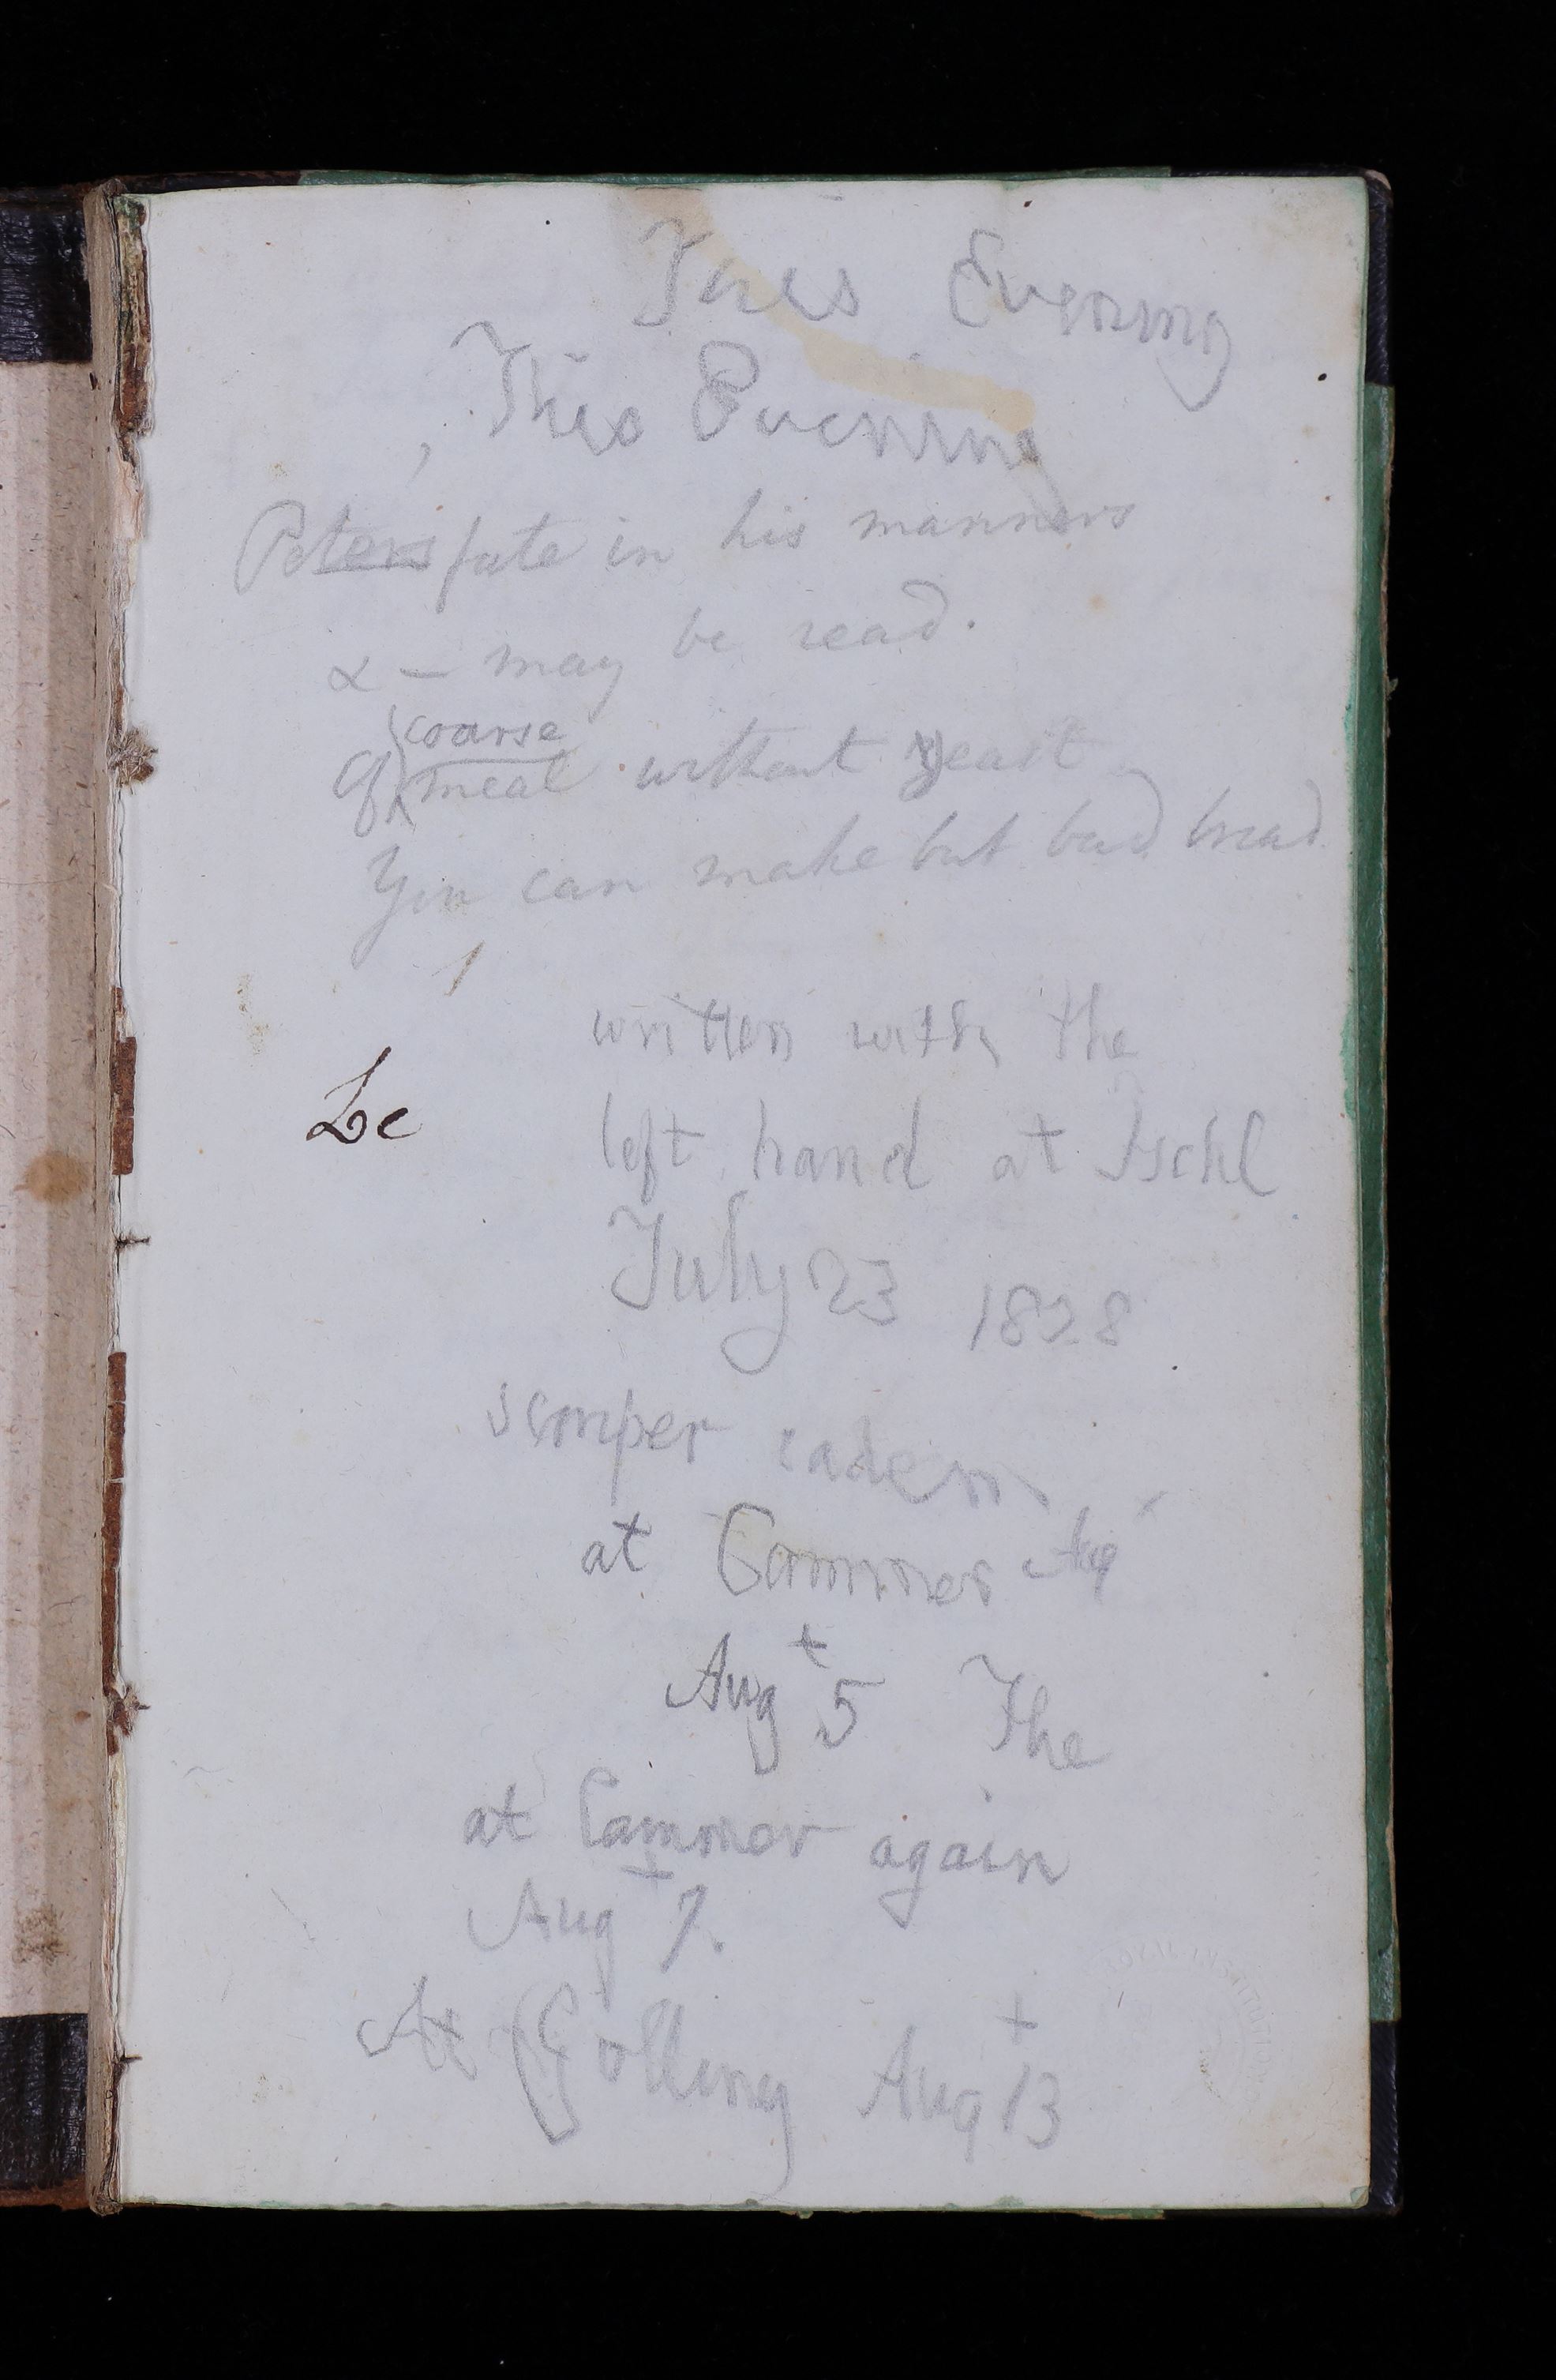 This Evening
This Evening
Peters fate in his manners
& — may be read.
coarse
Of meal without yeast
You can make but bad bread
written with the
Le
left hand at Ischl
July 23 1828
semper eadem
at Gmunden Aug
Augt 5 The
at Cammer again
Augt 7.
At Golling Augt 13
ROYAL INSTITUTION